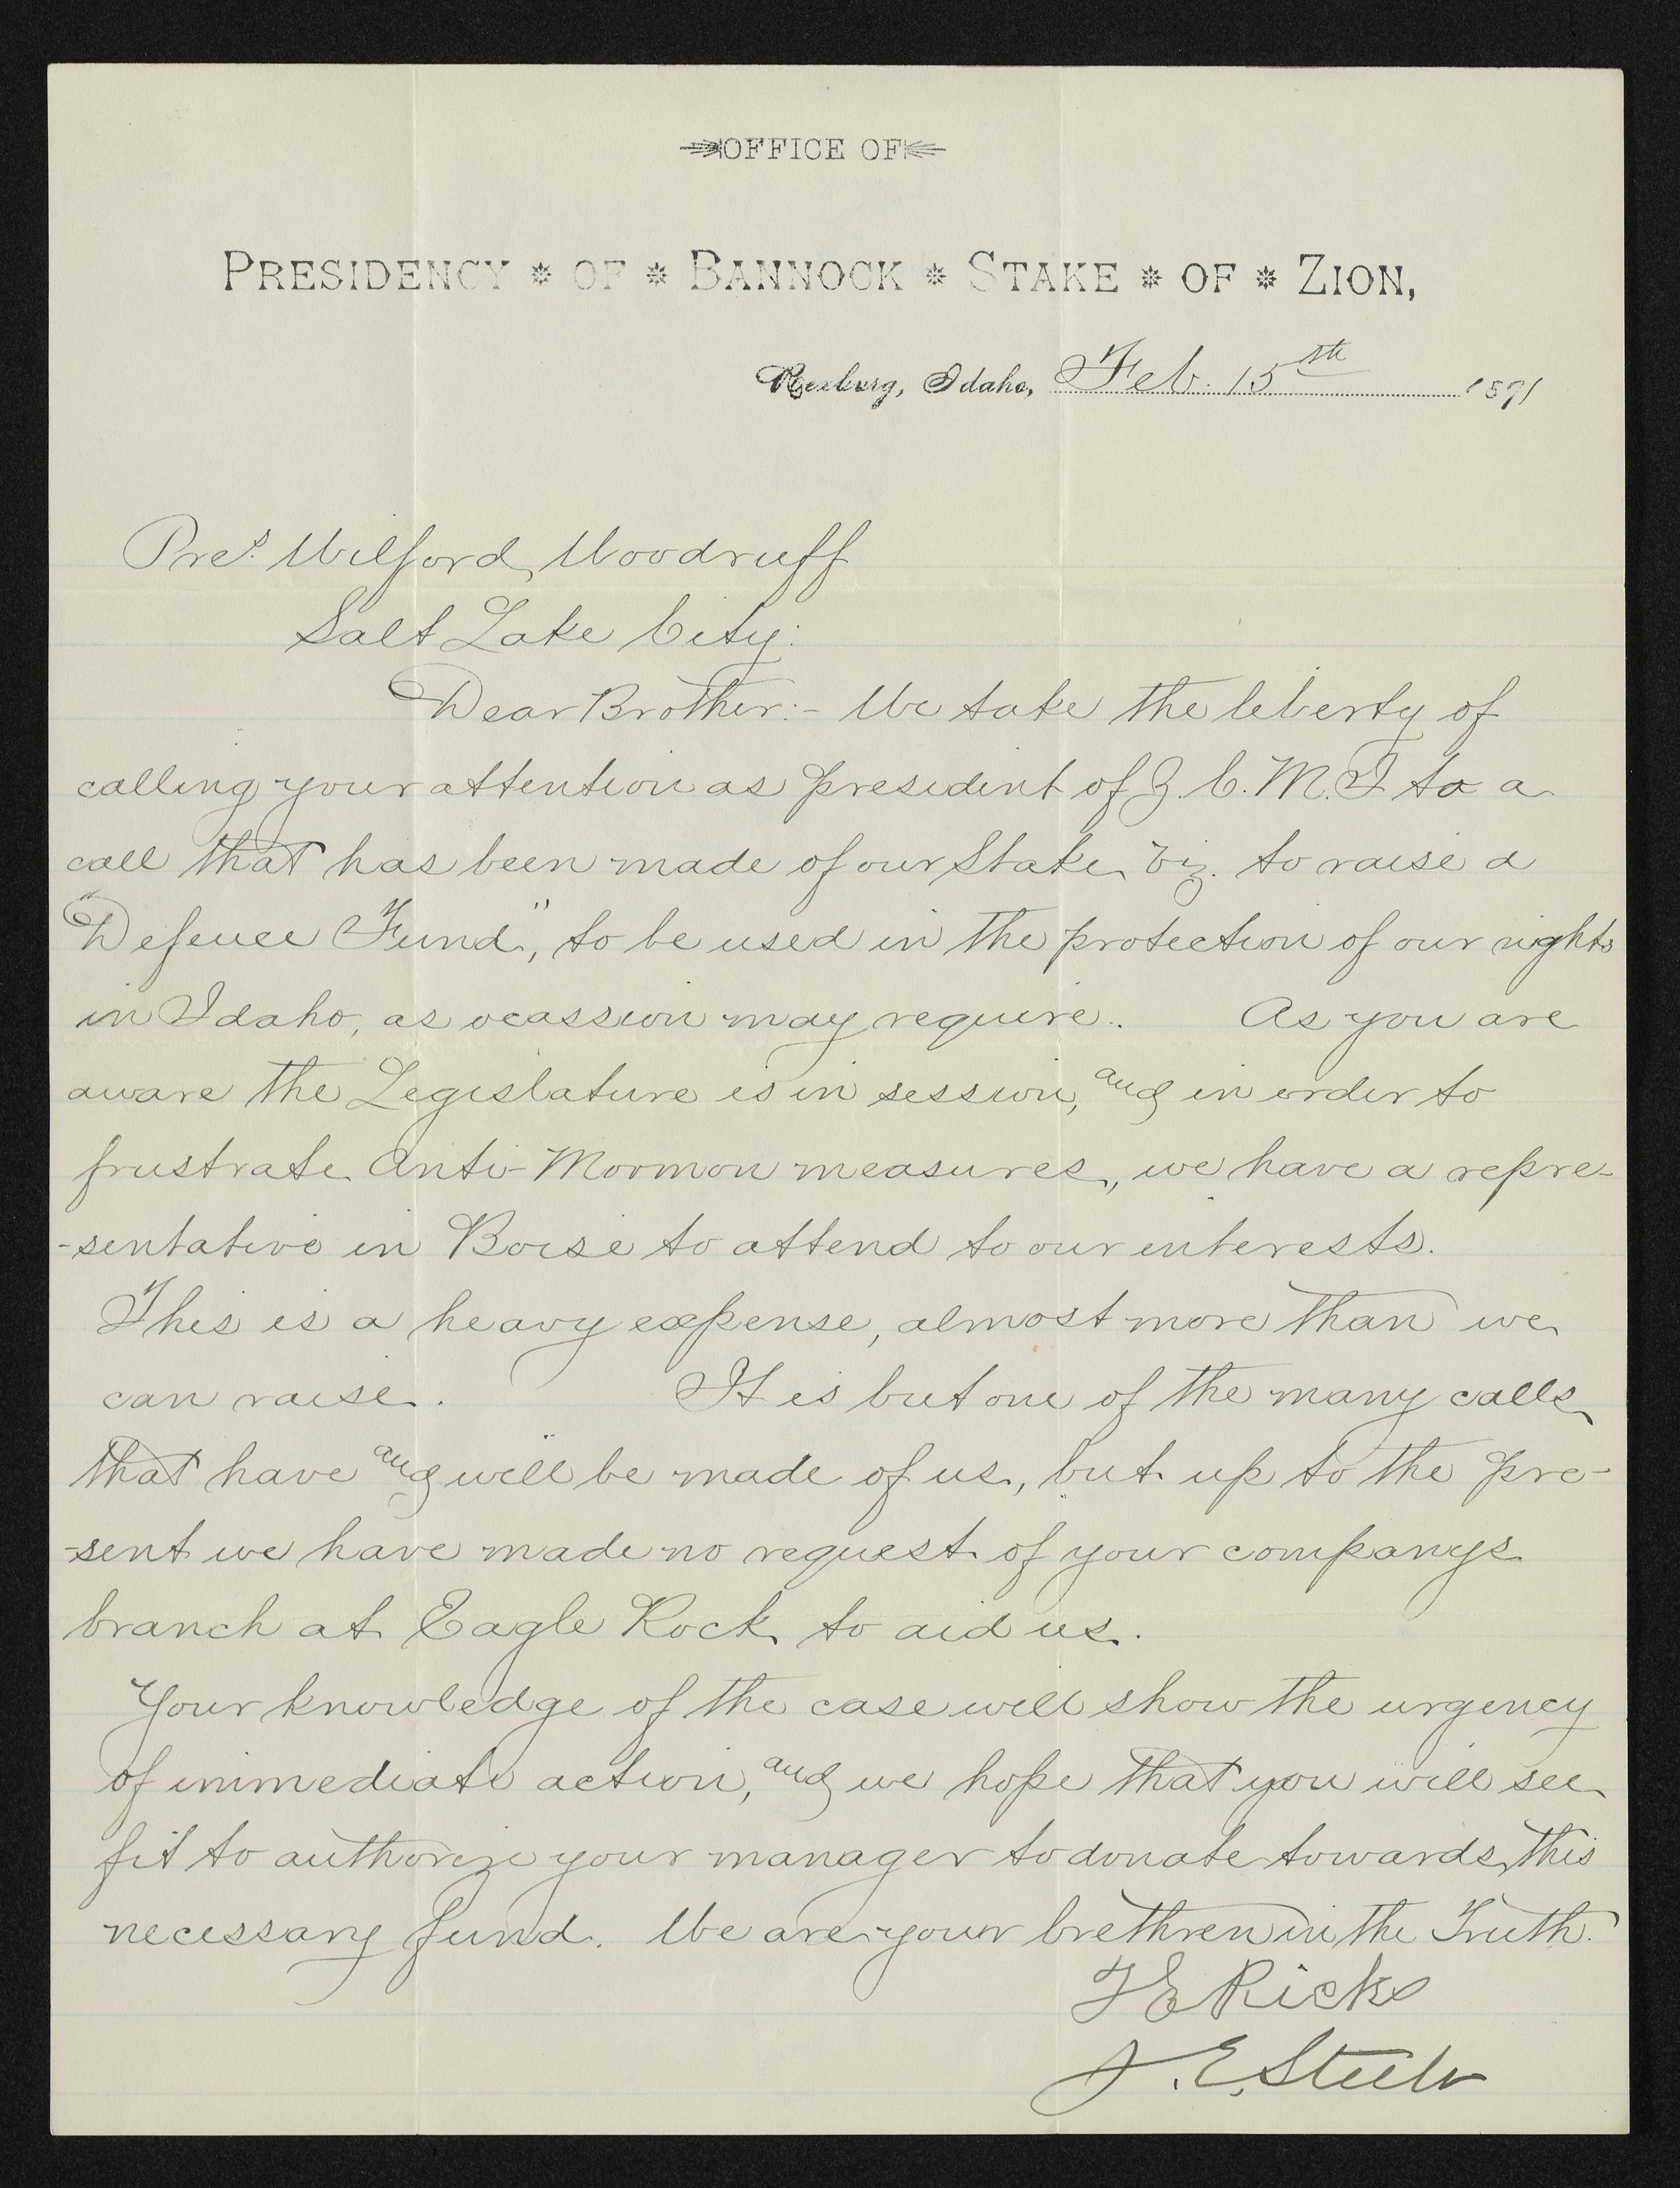 OFFICE OF
PRESIDENCY * OF * BANNOCK * STAKE * OF * ZION,
Rexburg, Idaho, Feb. 15th 1891
Pres. Wilford Woodruff
Salt Lake City:
Dear Brother:- We take the liberty of
calling your attention as president of Z. C. M. I to a
call that has been made of our Stake, viz. to raise a
"Defence Fund", to be used in the protection of our rights
in Idaho, as ocassion may require. As you are
aware the Legislature is in session, and in order to
frustrate Anti-Mormon measures, we have a repre-
-sentative in Boise to attend to our interests.
This is a heavy expense, almost more than we
can raise. It is but one of the many calls
that have and will be made of us, but up to the pre-
-sent we have made no request of your companys
branch at Eagle Rock to aid us.
Your knowledge of the case will show the urgency
of immediate action, and we hope that you will see
fit to authorize your manager to donate towards this
necessary fund. We are your brethren in the Truth.
T E Ricks
J. E. Steele